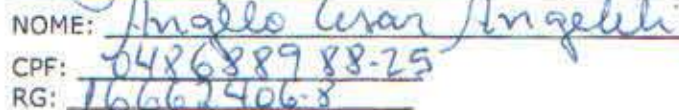 NOME: Angello Cesar Angeleli
CPF: 048688988-25
RG: 16662406-8